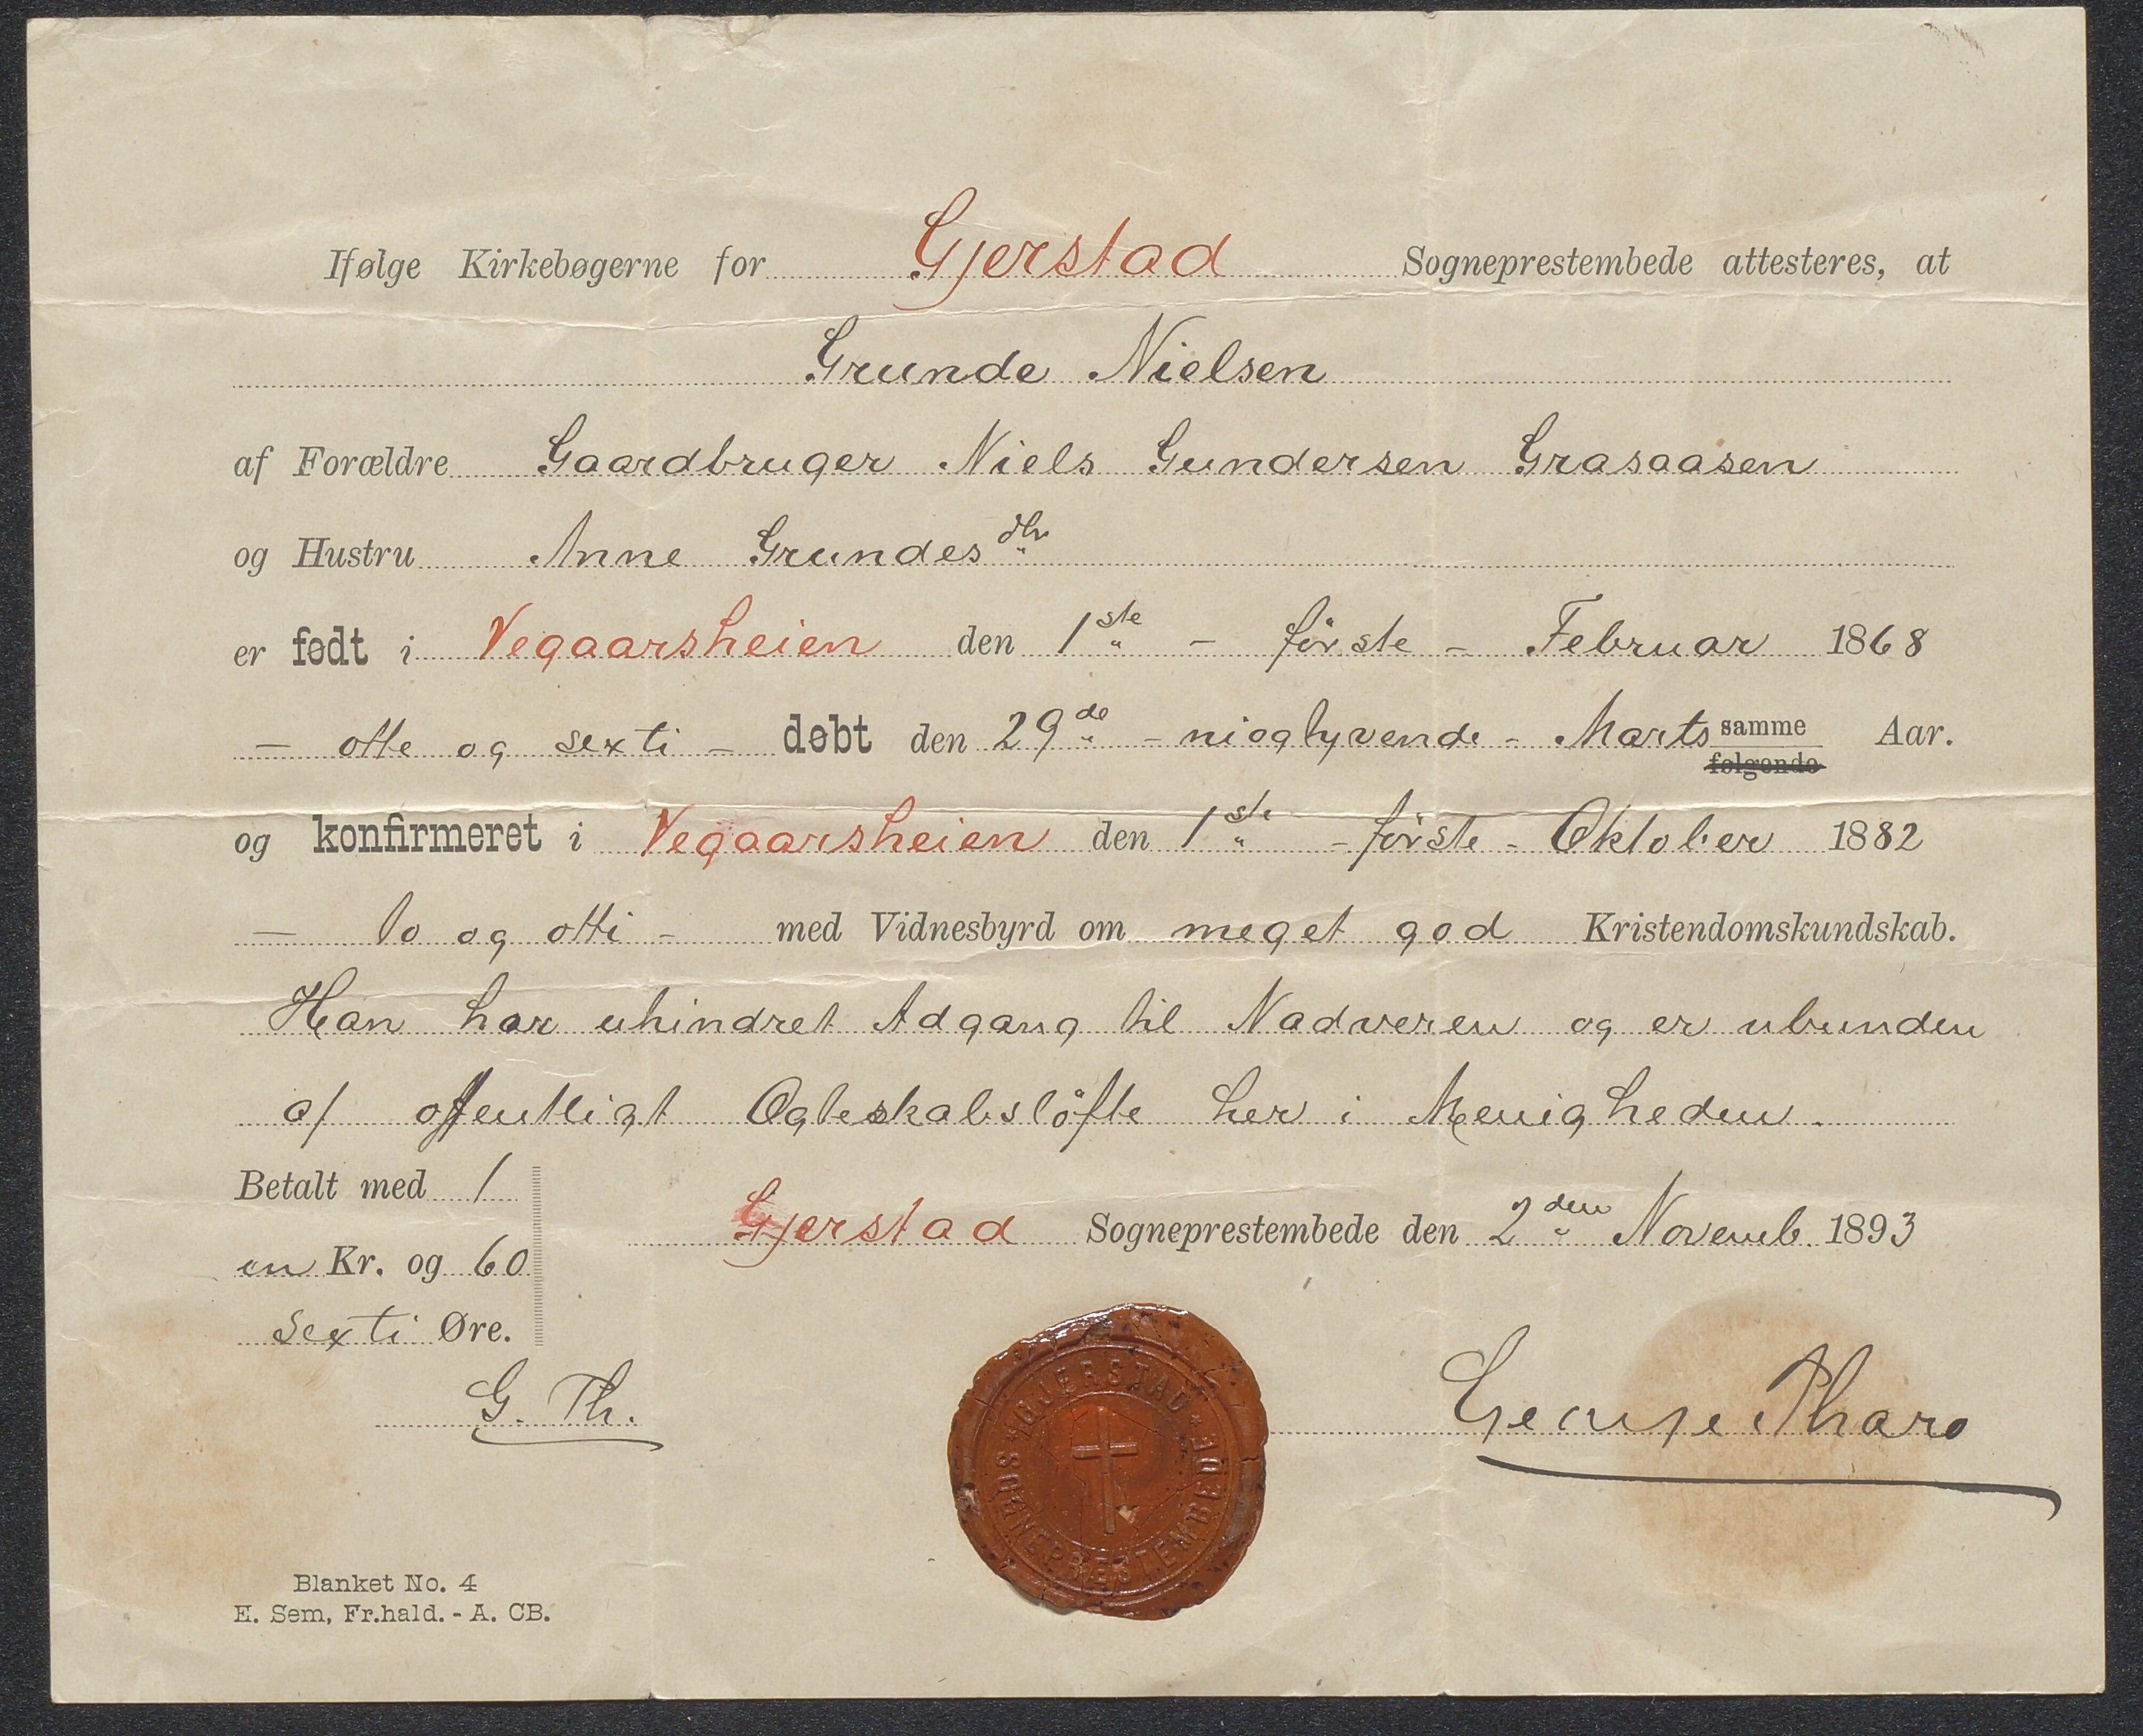 Ifølge Kirkebøgerne for Gjerstad Sogneprestembede attesteres, at
Grunde Nielsen
af Forældre Gaardbruger Niels Gundersen Grasaasen
og Hustru Anne Grundesdtr
er født i Vegaarsheien den 1ste - første - Februar 1868
- otte og sexti - døbt den 29de - niogtyvende - Marts samme Aar.
følgende
og konfirmeret i Vegaarsheien den 1ste - første - Oktober 1882
- to og otti - med Vidnesbyrd om meget god Kristendomskundskab.
Han har uhindret Adgang til Nadveren og er ubunden
af offentligt Ægteskabsløfte her i Menigheden.
Betalt med 1
en Kr. og 60
sexti Øre.
G. Th.
Gjerstad Sogneprestembede den 2den Novemb. 1893
GJERSTAD SOGNEPRESTEMBEDE
George Tharo
Blanket No. 4
E. Sem, Fr.hald. - A. CB.